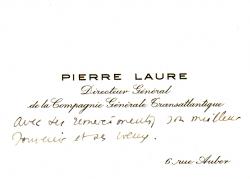 PIERRE LAURE
Directeur Général
de la Compagnie Générale Transatlantique
avec ses remerciements, son meilleur
souvenir et ses vœux.
6, rue Auber